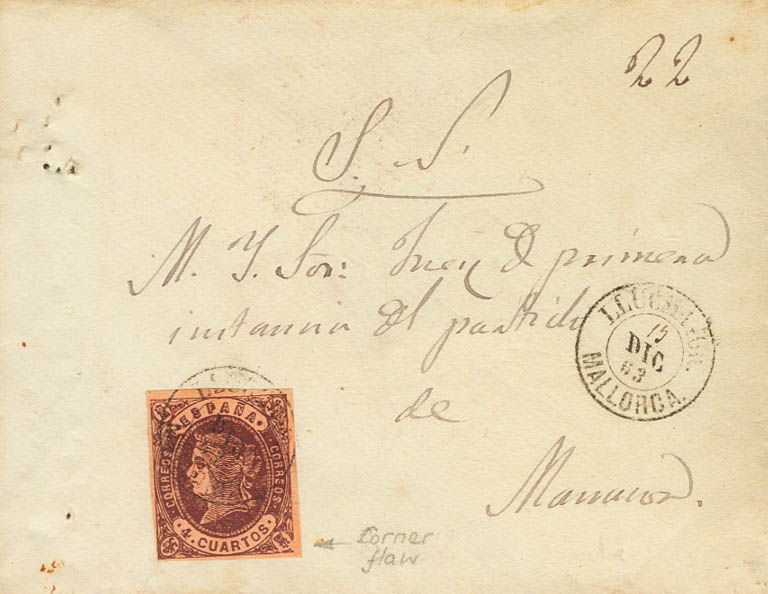 22
S. S.
M. Y. Sor: Juez de primera
instancia del partido
de
Manacor.
LLUCMAJOR.
15
DIC
63
MALLORCA.
ESPAÑA
CORREOS CORREOS
4. CUARTOS
Corner
flaw